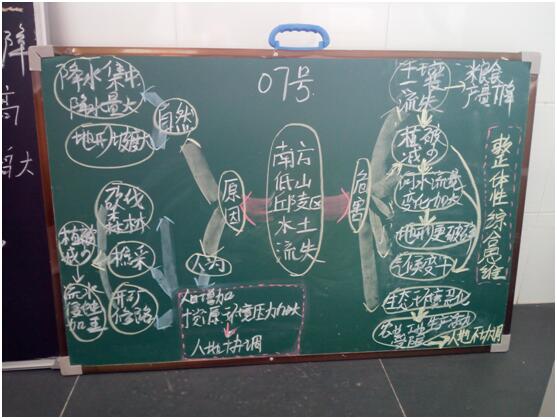 07号
降水集中
降水量大
地形坡度大
自然
原因
人为
砍伐
森林
植被
减少
流水
侵蚀
加重
滥采
开矿
修路
人口增加
资源环境压力加大
人地协调
南方
低山
丘陵区
水土
流失
危害
土壤
流失
粮食
产量下降
植被
减少
河水流量
变化加大
地形更破碎
气候变干
生态环境恶化
农业、工业生产活动
受阻
人地不协调
整体性 综合思维
降
高
大